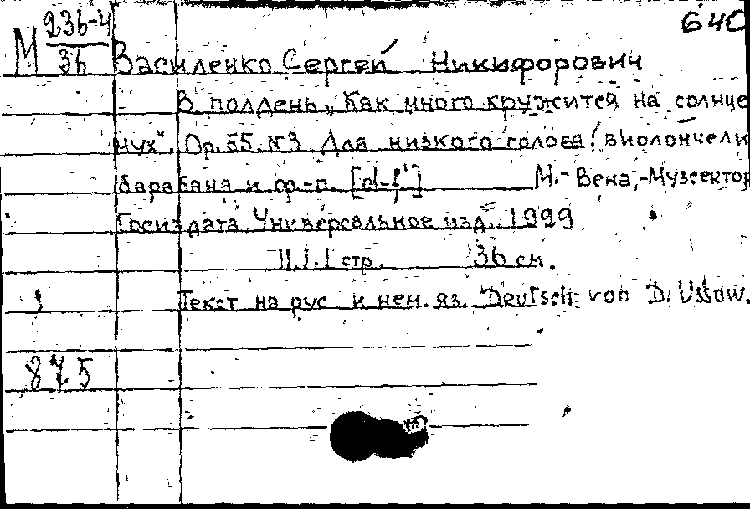 640
М 236-4
36
Василенко Сергей Никифорович
В полдень „Как много кружится на солнце
мух". Op. 55. №3. Для низкого голоса, виолончели
барабана и ф-п. [d-f¹] М.-Вена,-Музсектор
Госиздата, Универсальное изд., 1929
II. 1. 1 стр. 36 см.
Текст на рус. и нем. яз. Deutsch von D. Ussow.
875